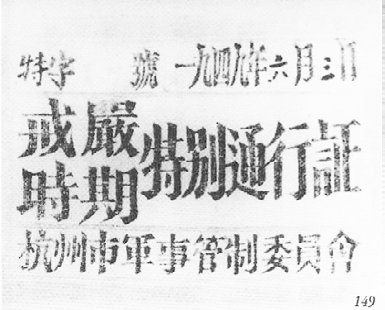 特字 號 一九四九年六月三日
戒嚴時期特別通行証
杭州市軍事管制委員會
149